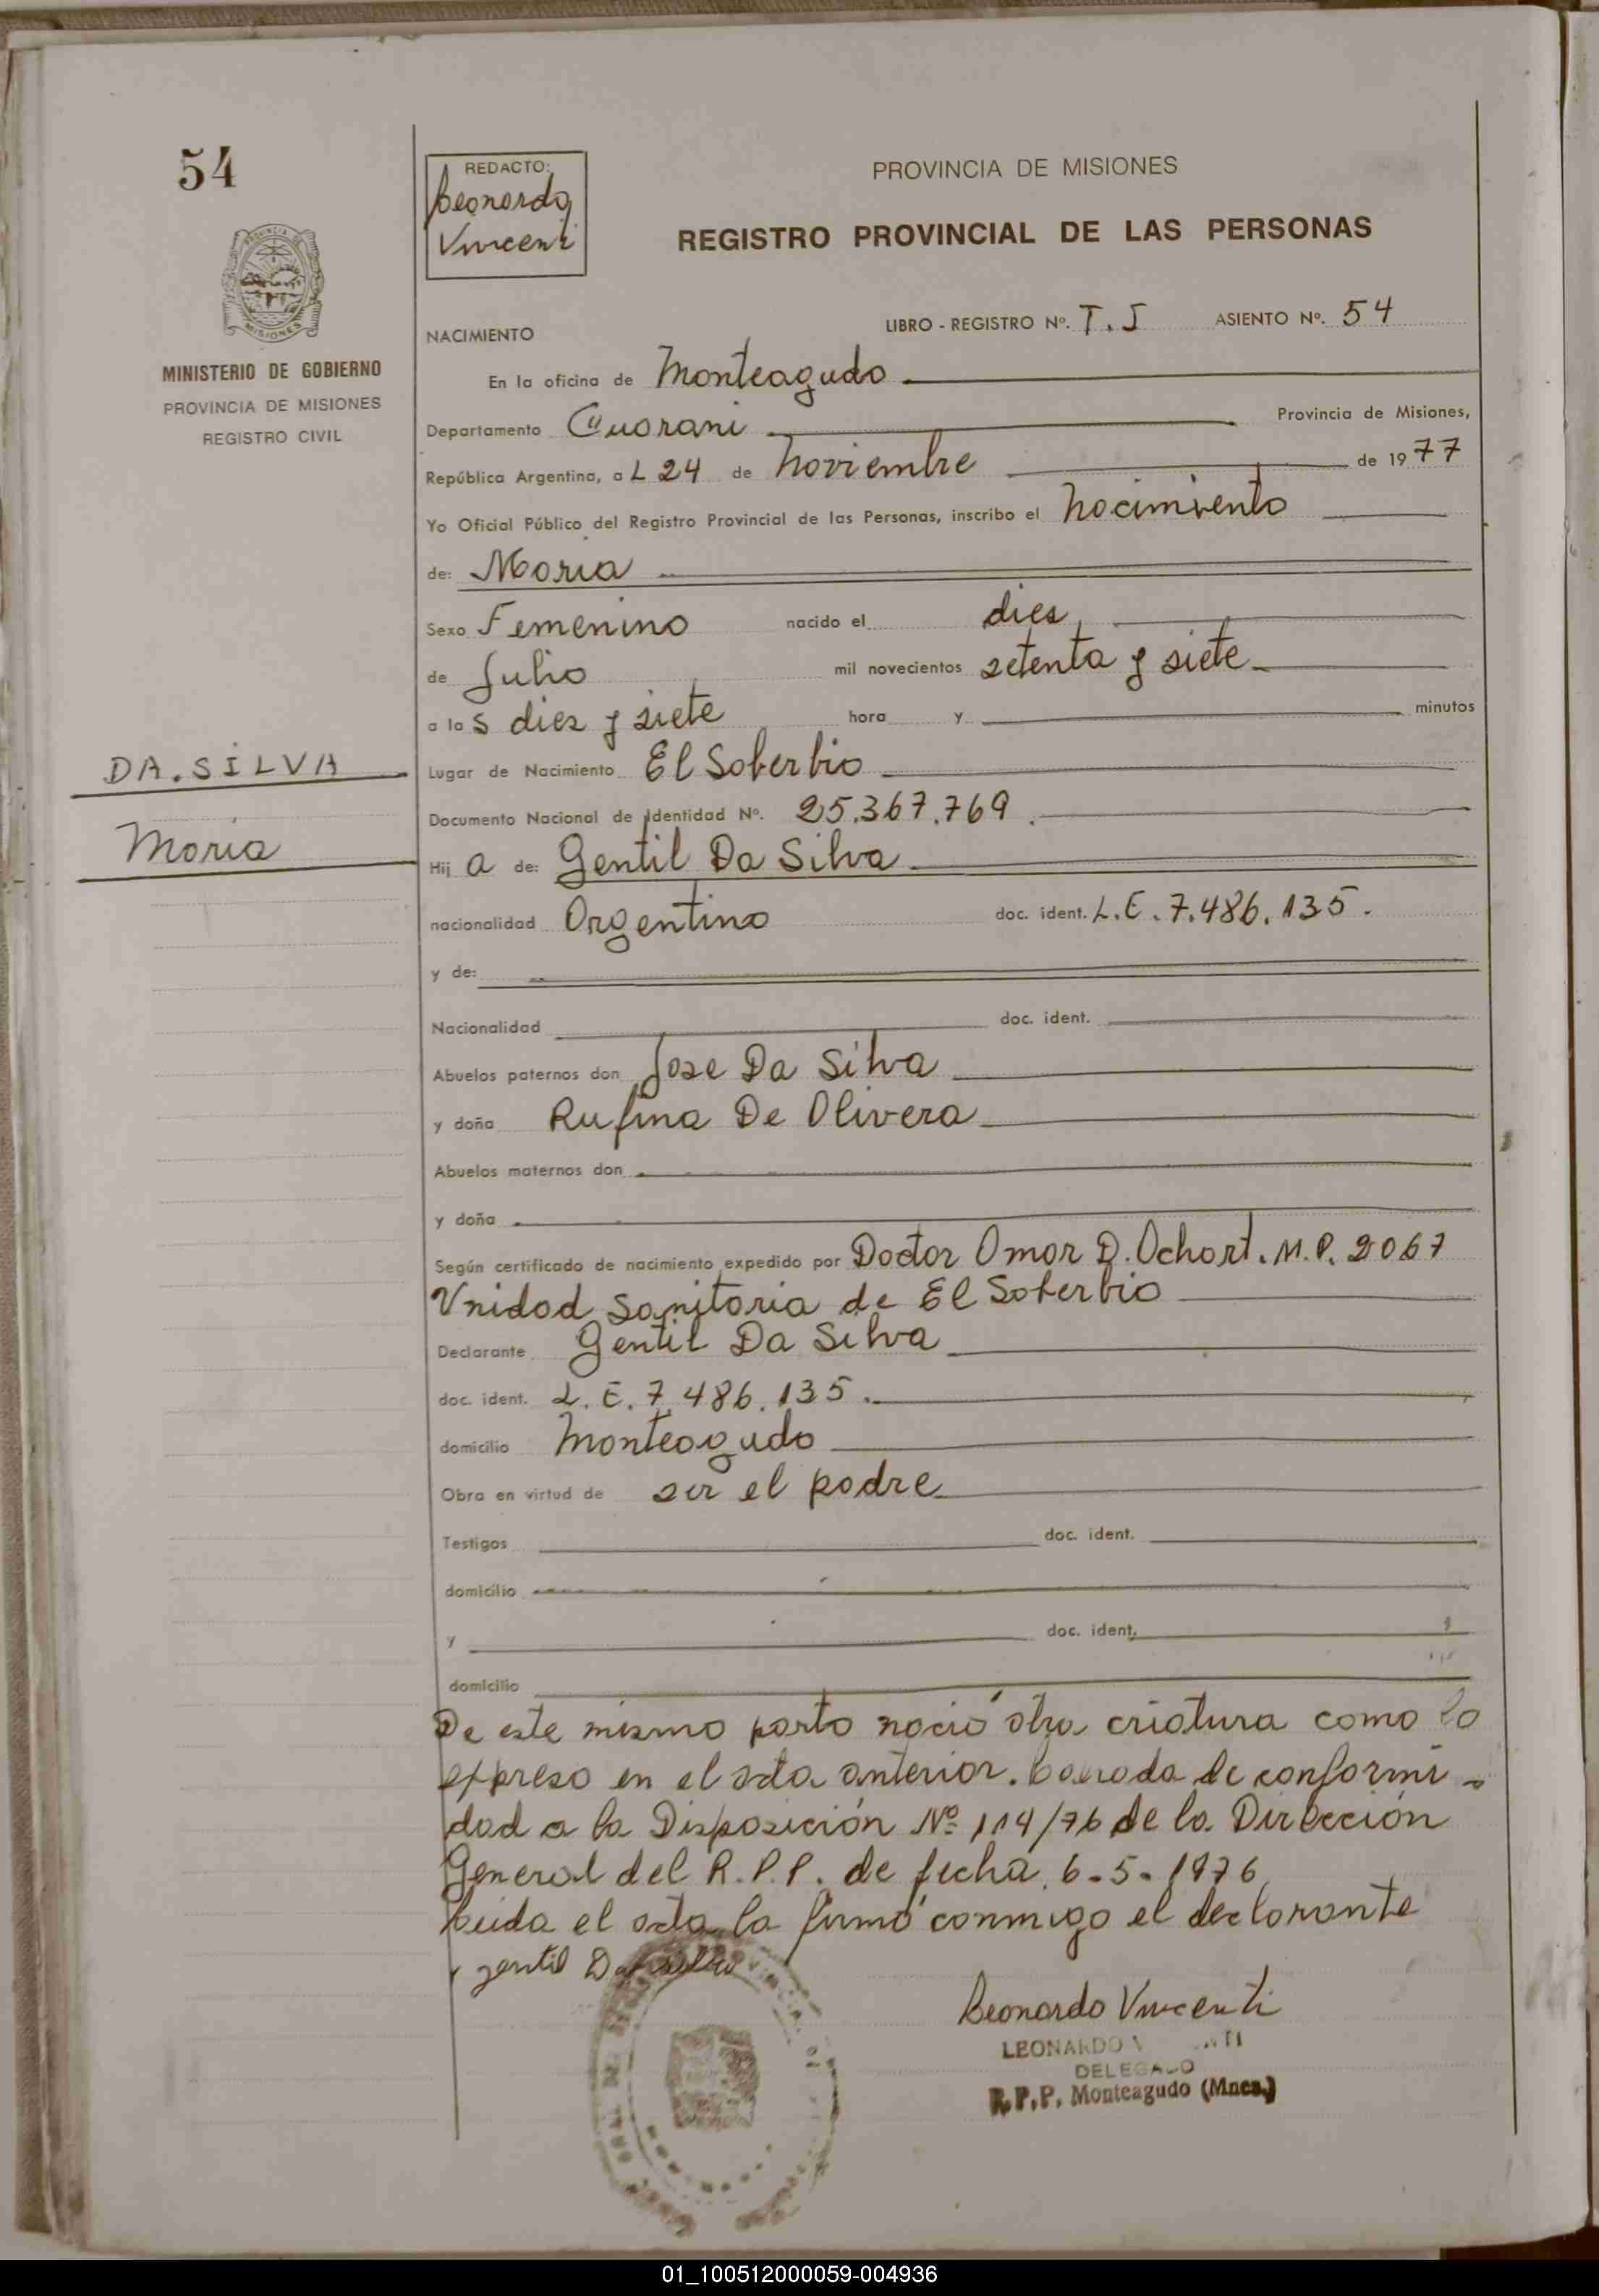 54
REDACTO:
Leonardo
Vincenti
PROVINCIA DE MISIONES
REGISTRO PROVINCIAL DE LAS PERSONAS
MINISTERIO DE GOBIERNO
PROVINCIA DE MISIONES
REGISTRO CIVIL
NACIMIENTO
LIBRO - REGISTRO Nº. T. I ASIENTO Nº. 54
En la oficina de Monteagudo
Departamento Guarani Provincia de Misiones,
República Argentina, a L 24 de noviembre de 1977
Yo Oficial Público del Registro Provincial de las Personas, inscribo el nacimiento
de: Maria
Sexo Femenino nacido el diez
de Julio mil novecientos setenta y siete
a las diez y siete hora y minutos
DA.SILVA
Maria
Lugar de Nacimiento El Soberbio
Documento Nacional de Identidad Nº. 25.367.769.
Hij a de: Gentil Da Silva
nacionalidad Argentino doc. ident. L.E. 7.486.135.
y de:
Nacionalidad doc. ident.
Abuelos paternos don Jose Da Silva
y doña Rufina De Olivera
Abuelos maternos don
y doña
Según certificado de nacimiento expedido por Doctor Omar D. Ochart. M.P. 2067
Unidad Sanitaria de El Soberbio
Declarante Gentil Da Silva
doc. ident. L.E. 7.486.135.
domicilio Monteagudo
Obra en virtud de ser el padre
Testigos doc. ident.
domicilio
y doc. ident.
domicilio
De este mismo parto nació otra criatura como lo
expreso en el acta anterior. Labrada de conformi-
dad a la Disposición Nº 114/76 de la Dirección
General del R.P.P. de fecha 6-5-1976
Leida el acta la firmó conmigo el declarante
gentil Da silva
Leonardo Vincenti
LEONARDO
DELEGADO
R.P.P. Monteagudo (Mnes.)
01_100512000059-004936